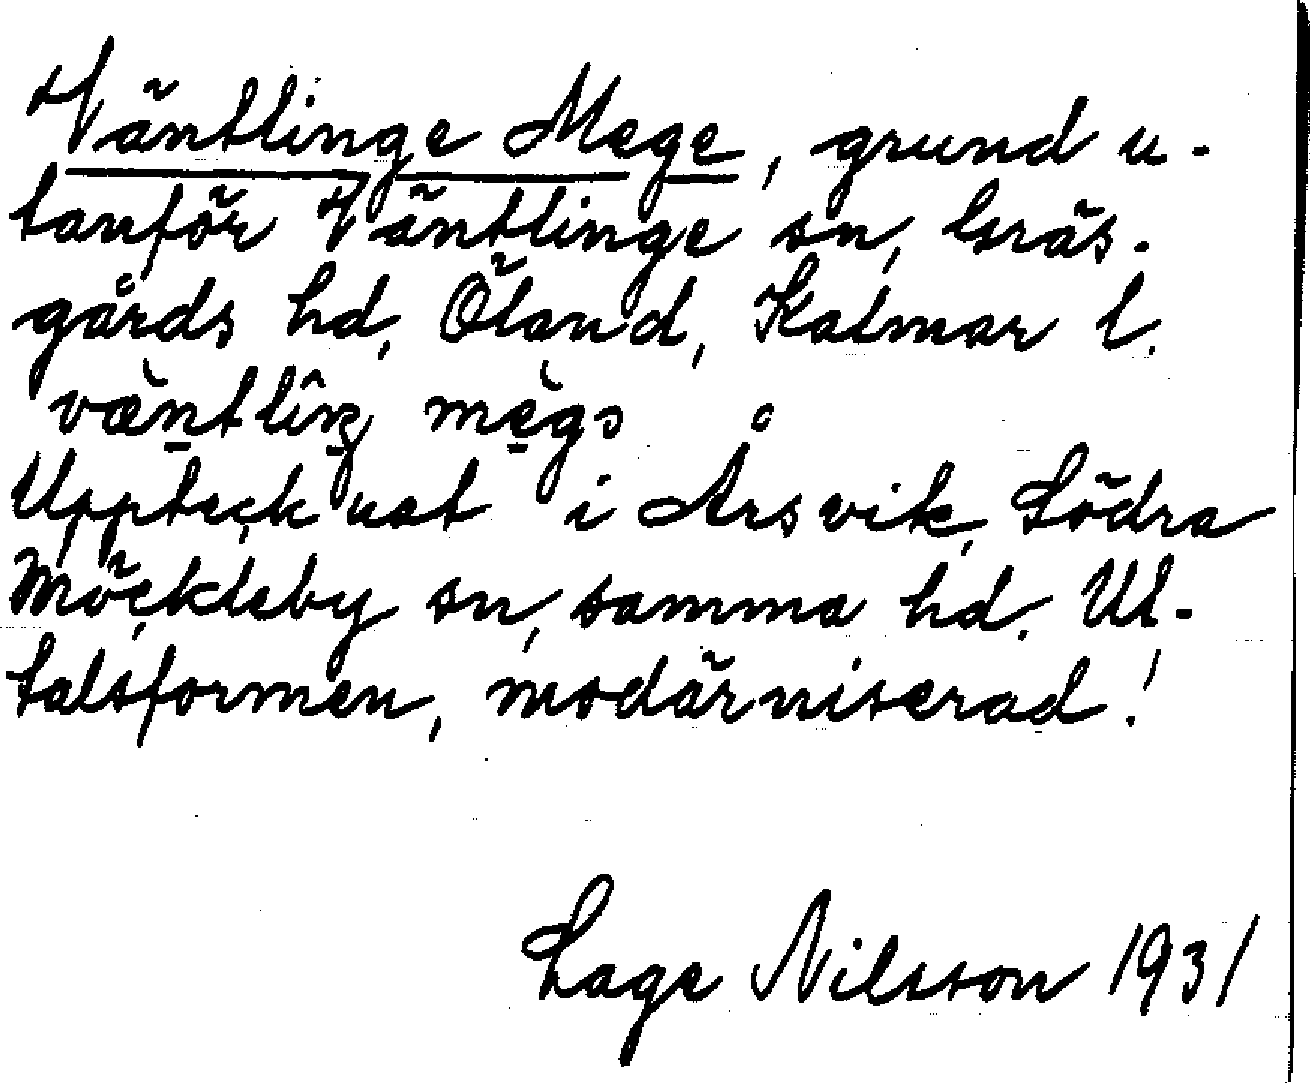 Väntlinge Mege, grund u-
tanför Väntlinge sn, Gräs-
gårds hd, Öland, Kalmar l.
væ̀ntlîŋ mègə
Upptecknat i Årsvik, Södra
Möckleby sn, samma hd. Ut-
talsformen, modärniserad!
Lage Nilsson 1931